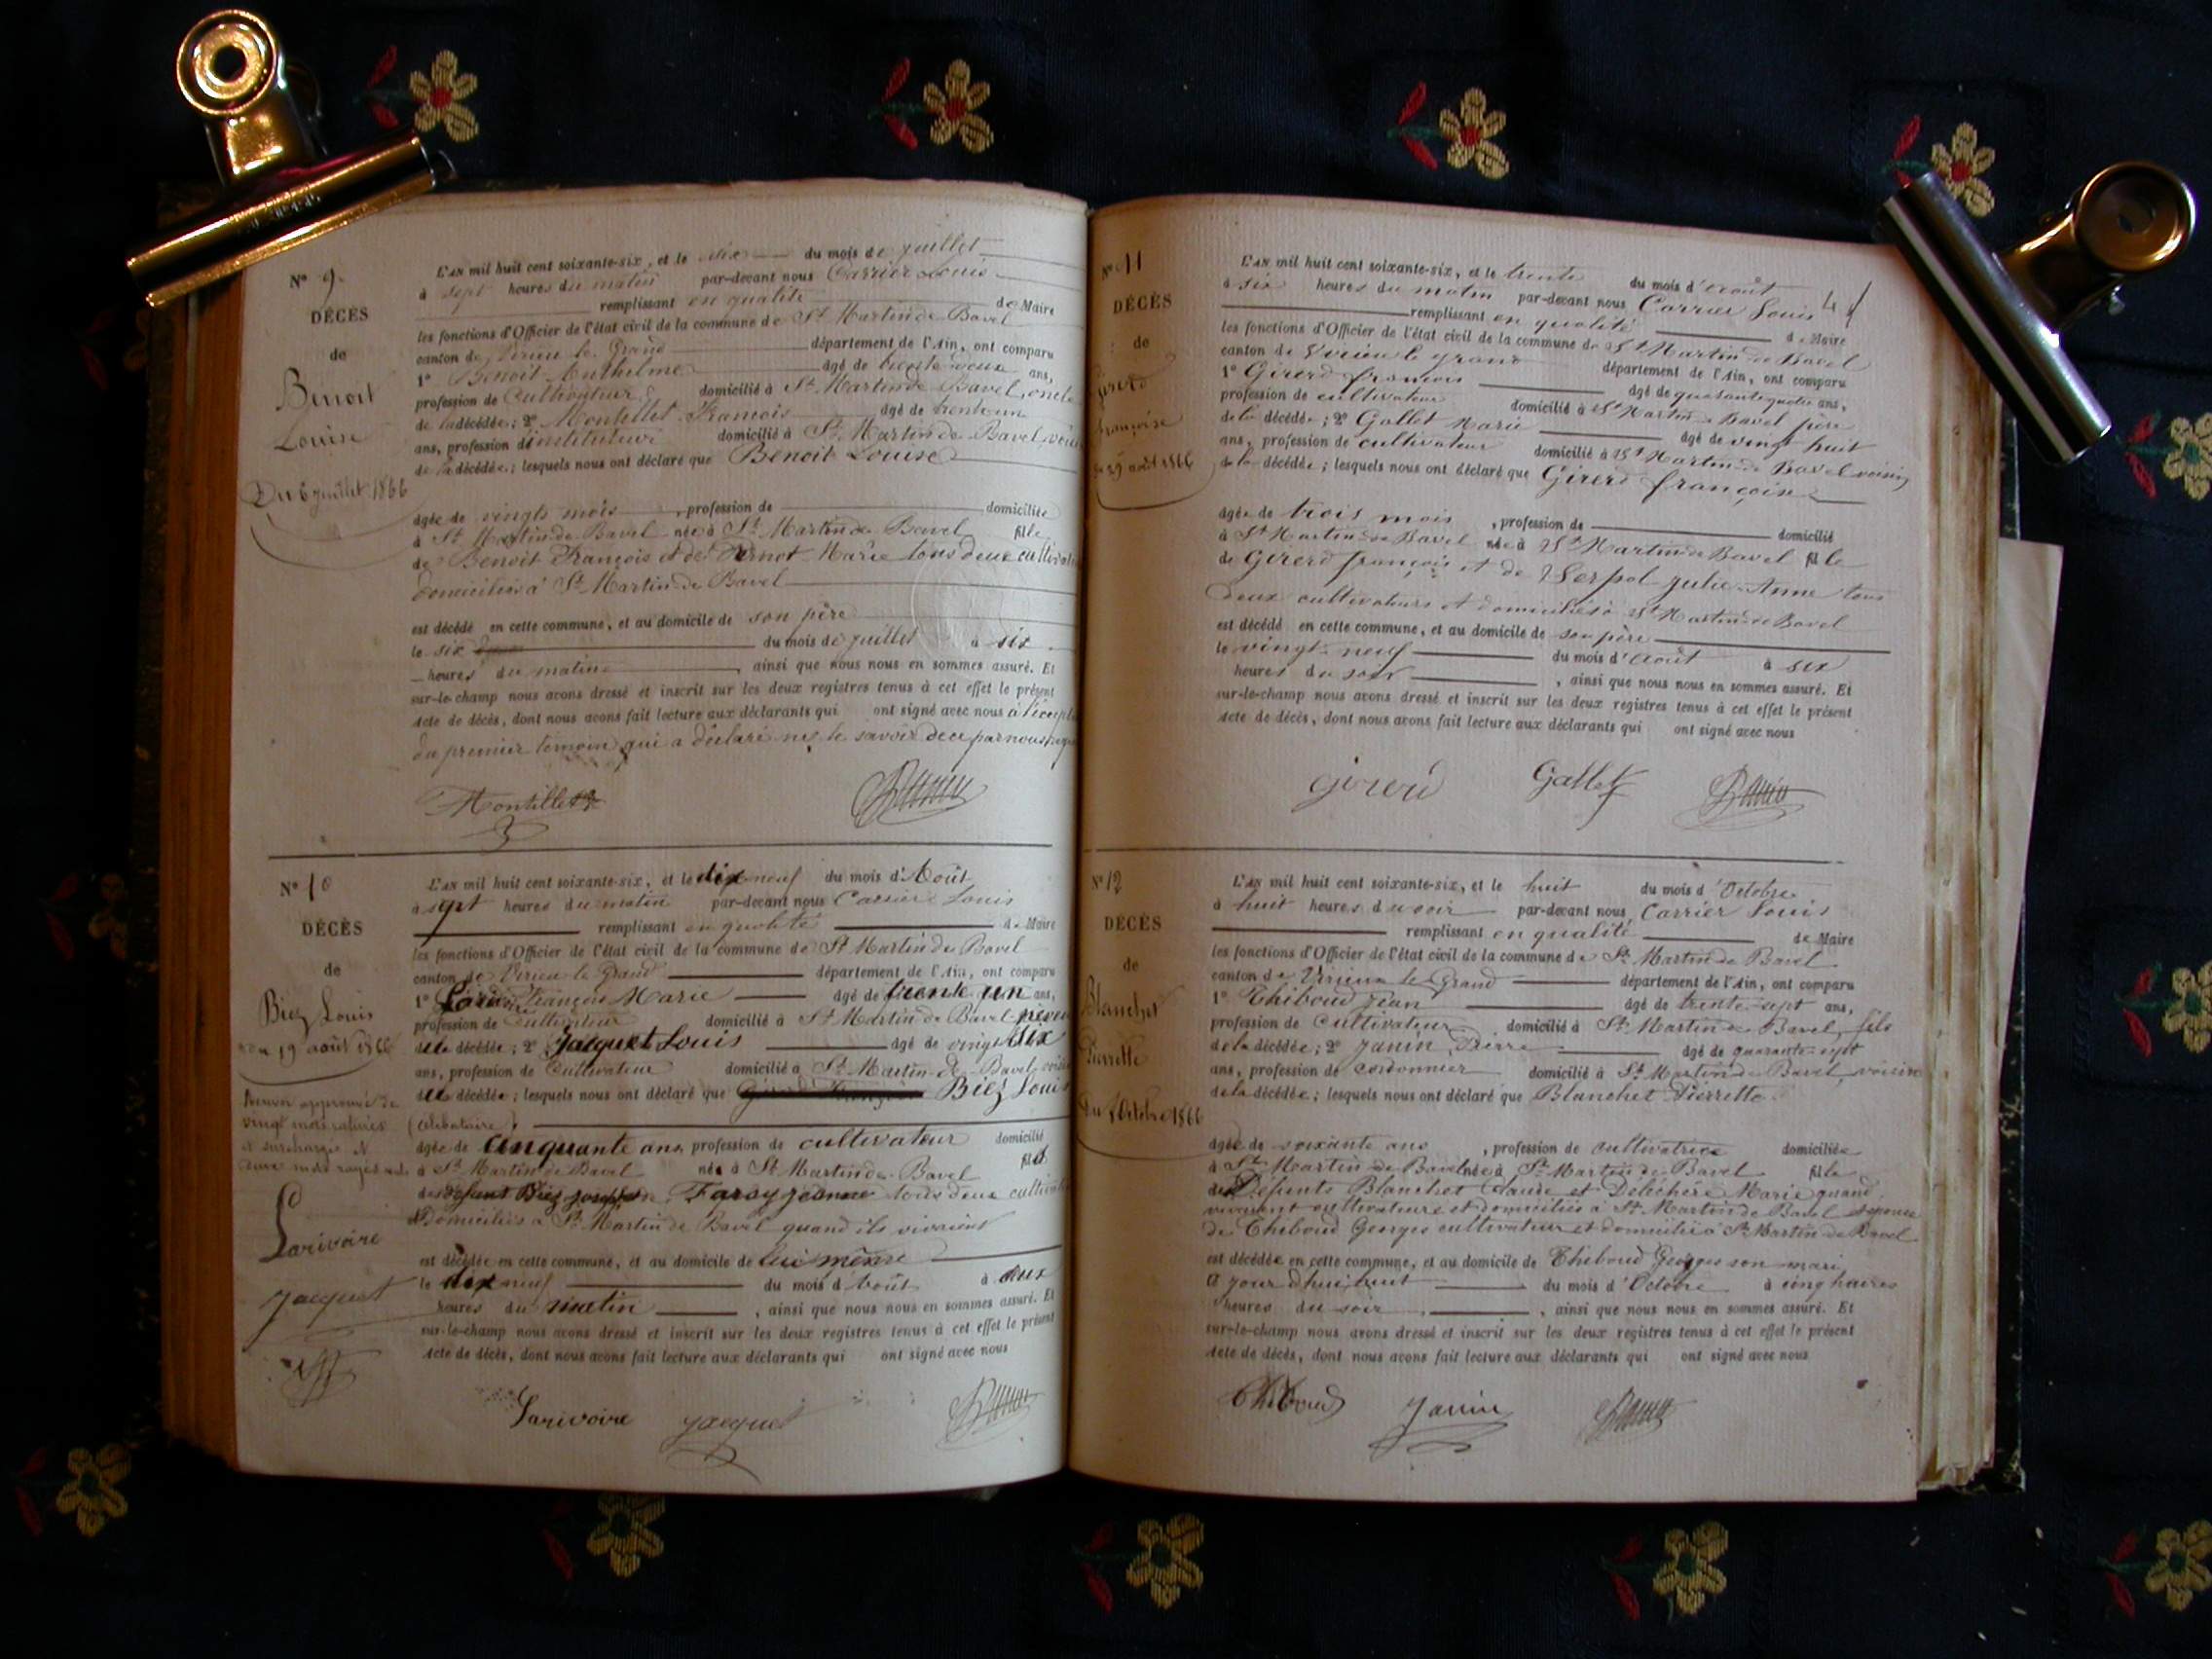 N° 9
DÉCÈS
de
Benoit
Louise
Du 6 juillet 1866
L'AN mil huit cent soixante-six, et le six du mois de juillet
à sept heures du matin par-devant nous Carrier Louis
remplissant en qualité de Maire
les fonctions d'Officier de l'état civil de la commune de St Martin de Bavel
canton de Virieu le Grand département de l'Ain, ont comparu
1° Benoit Anthelme âgé de ans,
profession de Cultivateur domicilié à St Martin de Bavel, oncle
de la décédée; 2° Montillet François âgé de trente un
ans, profession d'instituteur domicilié à St Martin de Bavel, voisin
de la décédée; lesquels nous ont déclaré que Benoit Louise
âgée de vingts mois, profession de domiciliée
à St Martin de Bavel née à St Martin de Bavel fille
de Benoit François et de Marie tous deux cultivateurs
domiciliés à St Martin de Bavel
est décédé en cette commune, et au domicile de son père
le six du mois de juillet à six
heures du matin, ainsi que nous nous en sommes assuré. Et
sur-le-champ nous avons dressé et inscrit sur les deux registres tenus à cet effet le présent
acte de décès, dont nous avons fait lecture aux déclarants qui ont signé avec nous à l'exception
du premier temoin qui a déclaré ne le savoir de ce par nous requis
Montillet
N° 10
DÉCÈS
de
Biez Louis
du 19 août 1866
Renvoi approuvé de
vingt mots raturés
et surchargés et
deux mots rayés nuls
Larivoire
Jacquet
L'AN mil huit cent soixante-six, et le dix neuf du mois d'Août
à sept heures du matin par-devant nous Carrier Louis
remplissant en qualité de Maire
les fonctions d'Officier de l'état civil de la commune de St Martin de Bavel
canton de Virieu le Grand département de l'Ain, ont comparu
1° François Marie âgé de trente un ans,
profession de Cultivateur domicilié à St Martin de Bavel neveu
du décédé; 2° Jacquet Louis âgé de vingt six
ans, profession de Cultivateur domicilié à St Martin de Bavel voisin
du décédé; lesquels nous ont déclaré que Biez Louis
(célibataire)
âgé de cinquante ans, profession de cultivateur domicilié
à St Martin de Bavel né à St Martin de Bavel fils
de défunt Biez Joseph Farsy Jeanne tous deux cultivateurs
Domiciliés à St Martin de Bavel quand ils vivaient
est décédée en cette commune, et au domicile de lui même
le dix neuf du mois d'Août à deux
heures du matin, ainsi que nous nous en sommes assuré. Et
sur-le-champ nous avons dressé et inscrit sur les deux registres tenus à cet effet le présent
acte de décès, dont nous avons fait lecture aux déclarants qui ont signé avec nous
Larivoire Jacquet
N° 11
DÉCÈS
de
Girerd
françoise
du 29 août 1866
L'AN mil huit cent soixante-six, et le trente du mois d'Août
à six heures du matin par-devant nous Carrier Louis
remplissant en qualité de Maire
les fonctions d'Officier de l'état civil de la commune de St Martin de Bavel
canton de Virieu le grand département de l'Ain, ont comparu
1° Girerd françois âgé de quarante quatre ans,
profession de cultivateur domicilié à St Martin de Bavel père
de la décédée; 2° Gallet Marie âgé de vingt huit
ans, profession de cultivateur domicilié à St Martin de Bavel voisin
de la décédée; lesquels nous ont déclaré que Girerd françoise
âgée de trois mois, profession de domicilié
à St Martin de Bavel née à St Martin de Bavel fille
de Girerd françois et de Serpol julie-Anne tous
deux cultivateurs et domiciliés à St Martin de Bavel
est décédé en cette commune, et au domicile de son père
le vingt-neuf du mois d'Août à six
heures du soir, ainsi que nous nous en sommes assuré. Et
sur-le-champ nous avons dressé et inscrit sur les deux registres tenus à cet effet le présent
acte de décès, dont nous avons fait lecture aux déclarants qui ont signé avec nous
girerd Gallet
N° 12
DÉCÈS
de
Blanchet
Pierrette
du 8 Octobre 1866
L'AN mil huit cent soixante-six, et le huit du mois d'Octobre
à huit heures du soir par-devant nous Carrier Louis
remplissant en qualité de Maire
les fonctions d'Officier de l'état civil de la commune de St Martin de Bavel
canton de Virieu le Grand département de l'Ain, ont comparu
1° Thiboud Jean âgé de trente-sept ans,
profession de Cultivateur domicilié à St Martin de Bavel, fils
de la décédée; 2° Janin Pierre âgé de quarante-sept
ans, profession de cordonnier domicilié à St Martin de Bavel, voisin
de la décédée; lesquels nous ont déclaré que Blanchet Pierrette
âgée de soixante ans, profession de cultivatrice domiciliée
à St Martin de Bavel née à St Martin de Bavel fille
des Défunts Blanchet Claude et Déléchère Marie quand
vivaient cultivateurs et domiciliés à St Martin de Bavel épouse
de Thiboud Georges cultivateur et domicilié à St Martin de Bavel
est décédée en cette commune, et au domicile de Thiboud Georges son mari
Aujourd'hui huit du mois d'Octobre à cinq heures
heures du soir, ainsi que nous nous en sommes assuré. Et
sur-le-champ nous avons dressé et inscrit sur les deux registres tenus à cet effet le présent
acte de décès, dont nous avons fait lecture aux déclarants qui ont signé avec nous
Thiboud Janin